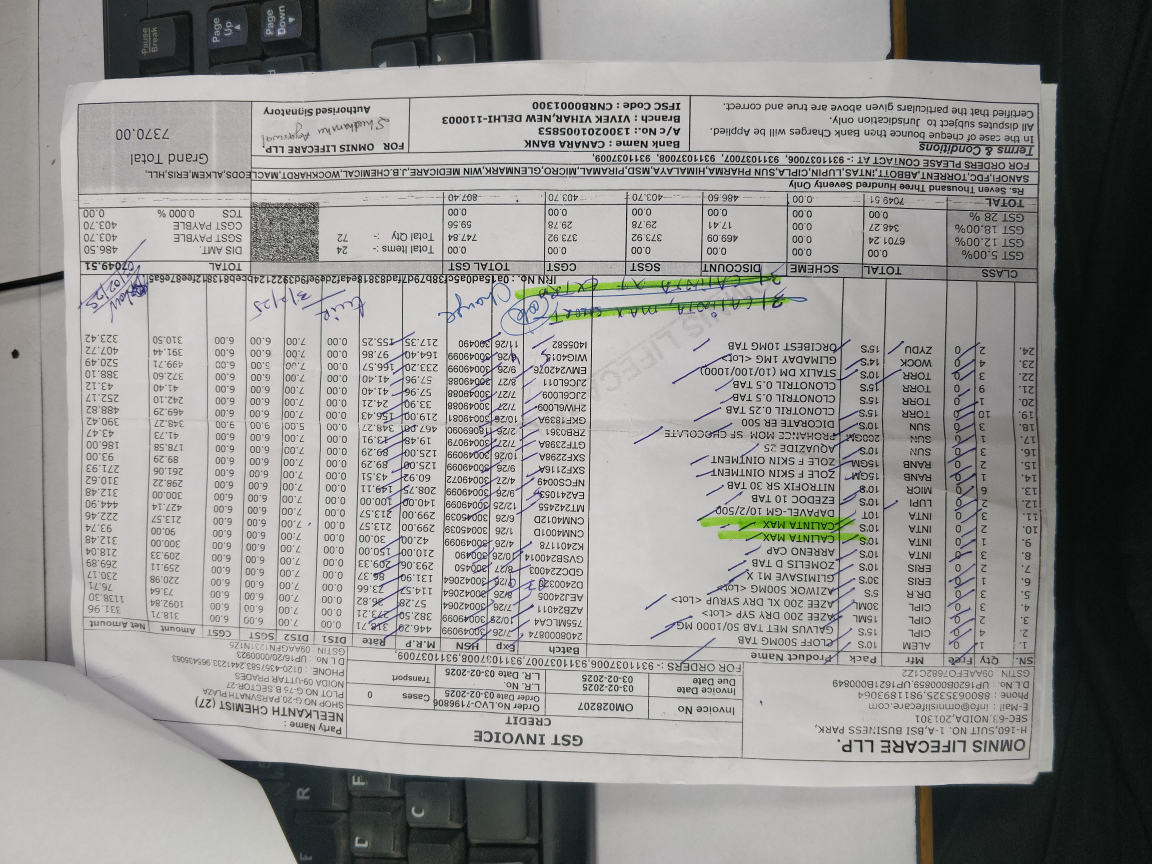 GST INVOICE
CREDIT
OMNIS LIFECARE LLP.
H-160,SUIT NO. 1-A,BSI BUSINESS PARK,
SEC-63,NOIDA,201301
E-Mail : info@omnislifecare.com
Phone : 8800630525, 9811893064
D.l No : UP1620B000859,UP1621B000849
GSTIN : 09AAEFO7682C1ZZ
Invoice No OM028207 Order No.LVO-7196806 Cases 0
Invoice Date 03-02-2025 Order Date 03-02-2025
Due Date 03-02-2025 L.R. No. Transport
L.R. Date 03-02-2025
Party Name :
NEELKANTH CHEMIST (27)
SHOP NO G-20,PARSVNATH PLAZA
PLOT NO G-75 B,SECTOR-27
NOIDA-09/UTTAR PRADES
PHONE : 0120-4357583,2447233,9654365063
D.l No. : UP16/20/0000923
FOR ORDERS -: 9311037006,9311037007,9311037008,9311037009,
SN. Qty Free Mfr Pack Product Name Batch Exp HSN M.R.P Rate DIS1 DIS2 SGST CGST Amount Net Amount
1. 1 0 ALEM 10'S CLOFF 500MG TAB 7/26 30049099 318.71 0.00 7.00 6.00 6.00 318.71 331.96
2. 4 0 CIPL 15'S GALVUS MET TAB 50/1000 MG 10/28 30049099 382.50 273.21 0.00 7.00 6.00 6.00 1092.84 1138.30
3. 2 0 CIPL 15ML AZEE 200 DRY SYP <Lot> AZB24011 7/26 30042064 57.28 36.82 0.00 7.00 6.00 6.00 73.64 76.71
4. 3 0 CIPL 30ML AZEE 200 XL DRY SYRUP <Lot> 8/26 30042064 114.57 73.66 0.00 7.00 6.00 6.00 220.98 230.17
5. 3 0 DR.R 5'S AZIWOK 500MG <Lot> 9/26 30042064 131.91 86.37 0.00 7.00 6.00 6.00 259.11 269.89
6. 1 0 ERIS 30'S GLIMISAVE M1 X GDC224003 8/27 300450 293.06 209.33 0.00 7.00 6.00 6.00 209.33 218.04
7. 2 0 ERIS 10'S ZOMELIS D TABLET GVSB24001 10/26 300490 210.00 150.00 0.00 7.00 6.00 6.00 300.00 312.48
8. 3 0 INTA 10'S ARRENO CAP K2401178 42.00 30.00 0.00 7.00 6.00 6.00 90.00 93.74
9. 1 0 INTA 10'S CALINTA MAX CNM4001D 1/26 30045039 299.00 213.57 0.00 7.00 6.00 6.00 213.57 222.46
10. 2 0 INTA 10T CALINTA MAX CNM4012D 6/26 30045039 299.00 213.57 0.00 7.00 6.00 6.00 427.14 444.90
11. 3 0 INTA 10T DAPAREL-GM 10/2/500 MT242457 12/25 30049099 140.00 100.00 0.00 7.00 6.00 6.00 300.00 312.48
12. 2 0 LUPI 10'S EZEDOC 10 TAB EA241053 9/26 30049099 208.75 149.11 0.00 7.00 6.00 6.00 298.22 310.62
13. 6 0 MICR 10'S NITROFIX SR 30 TAB NFSC0049 4/27 30049072 60.92 43.51 0.00 7.00 6.00 6.00 261.06 271.93
14. 1 0 RANB 15GM ZOLE F SKIN OINTMENT SXF2116A 9/26 300490 125.00 89.29 0.00 7.00 6.00 6.00 89.29 93.00
15. 2 0 RANB 15GM ZOLE F SKIN OINTMENT SXF2298A 10/26 300490 125.00 89.29 0.00 7.00 6.00 6.00 178.58 186.00
16. 3 0 SUN 10'S AQUAZIDE 25 GTF2398A 7/27 30049079 19.48 13.91 0.00 7.00 6.00 6.00 41.73 43.47
17. 1 0 SUN 200GM PROHANCE MOM SF CHOCOLATE ZRB0361 2/26 467.08 348.27 0.00 5.00 9.00 9.00 348.27 390.42
18. 3 0 SUN 10'S DICORATE ER 500 GKF1839A 10/26 30049081 219.00 156.43 0.00 7.00 6.00 6.00 469.29 488.82
19. 10 0 TORR 15'S CLONOTRIL 0.25 TAB 2HWL6009 7/27 30049088 33.90 24.21 0.00 7.00 6.00 6.00 242.10 252.17
20. 1 0 TORR 15'S CLONOTRIL 0.5 TAB 2IJC6L009 7/27 30049088 57.96 41.40 0.00 7.00 6.00 6.00 41.40 43.12
21. 9 0 TORR 15'S CLONOTRIL 0.5 TAB 2IJC6L011 8/27 30049088 57.96 41.40 0.00 7.00 6.00 6.00 372.60 388.10
22. 3 0 TORR 10'S STALIX DM (10/100/1000) EMV242076 9/26 30049099 233.20 166.57 0.00 7.00 6.00 6.00 499.71 520.49
23. 4 0 WOCK 14'S GLIMADAY 1MG <Lot> WIG4015 30049099 164.40 97.86 0.00 5.00 6.00 6.00 391.44 407.72
24. 2 0 ZYDU 15'S ORCIBEST 10MG TAB 1405582 11/26 300490 217.35 155.25 0.00 7.00 6.00 6.00 310.50 323.42
Change
3/2/25
CLASS TOTAL SCHEME DISCOUNT SGST CGST TOTAL GST TOTAL 7049.51
GST 5.00% 0.00 0.00 0.00 0.00 0.00 0.00 Total Items :- 24 DIS AMT. 486.50
GST 12.00% 6701.24 0.00 469.09 373.92 373.92 747.84 Total Qty :- 72 SGST PAYBLE 403.70
GST 18.00% 348.27 0.00 17.41 29.78 29.78 59.56 CGST PAYBLE 403.70
GST 28 % 0.00 0.00 0.00 0.00 0.00 0.00 TCS 0.000 % 0.00
TOTAL 7049.51 0.00 486.50 403.70 403.70 807.40
Rs. Seven Thousand Three Hundred Seventy Only
Grand Total
7370.00
SANOFI,FDC,TORRENT,ABBOTT,INTAS,LUPIN,CIPLA,SUN PHARMA,HIMALAYA,MSD,PIRAMAL,MICRO,GLENMARK,WIN MEDICARE,J.B.CHEMICAL,WOCKHARDT,MACLEODS,ALKEM,ERIS,HILL,
FOR ORDERS PLEASE CONTACT AT :- 9311037006, 9311037007, 9311037008, 9311037009,
Terms & Conditions
In the case of cheque bounce then Bank Charges will be Applied.
All disputes subject to Jurisdiction only.
Certified that the particulars given above are true and correct.
Bank Name : CANARA BANK
A/c No.: 120002105853
Branch : VIVEK VIHAR,NEW DELHI-110003
IFSC Code : CNRB0001300
FOR OMNIS LIFECARE LLP.
Authorised Signatory
Pause
Break
Page
Up
Page
Down
R
F
C
D
E